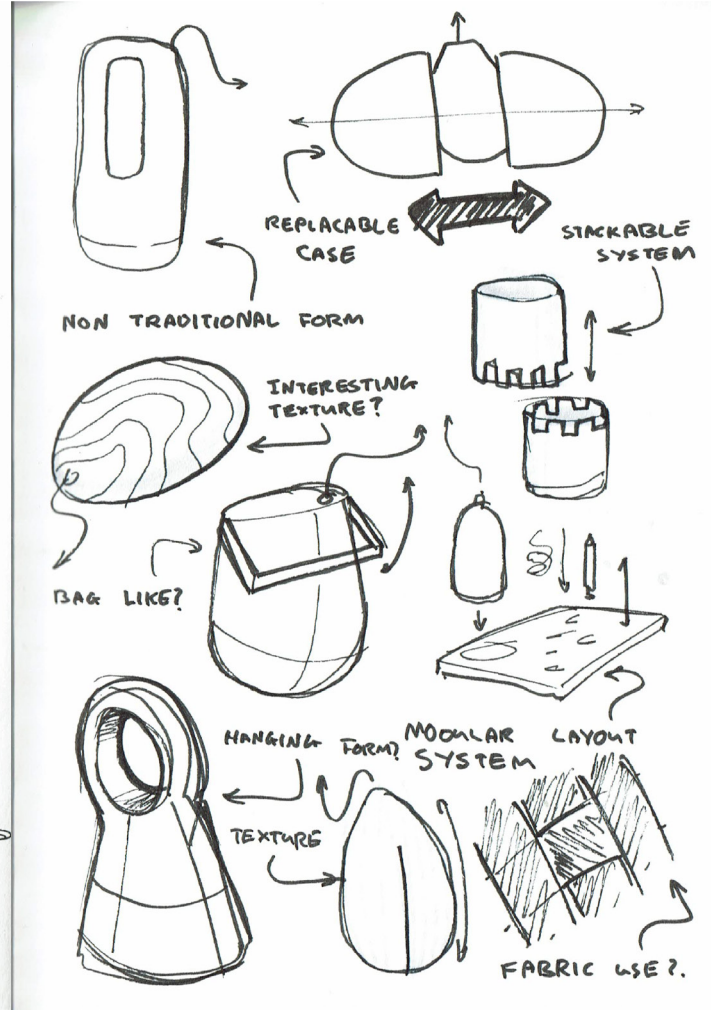 REPLACABLE
CASE
STACKABLE
SYSTEM
NON TRADITIONAL FORM
INTERESTING
TEXTURE?
BAG LIKE?
HANGING FORM?
MODULAR LAYOUT
SYSTEM
TEXTURE
FABRIC USE?.